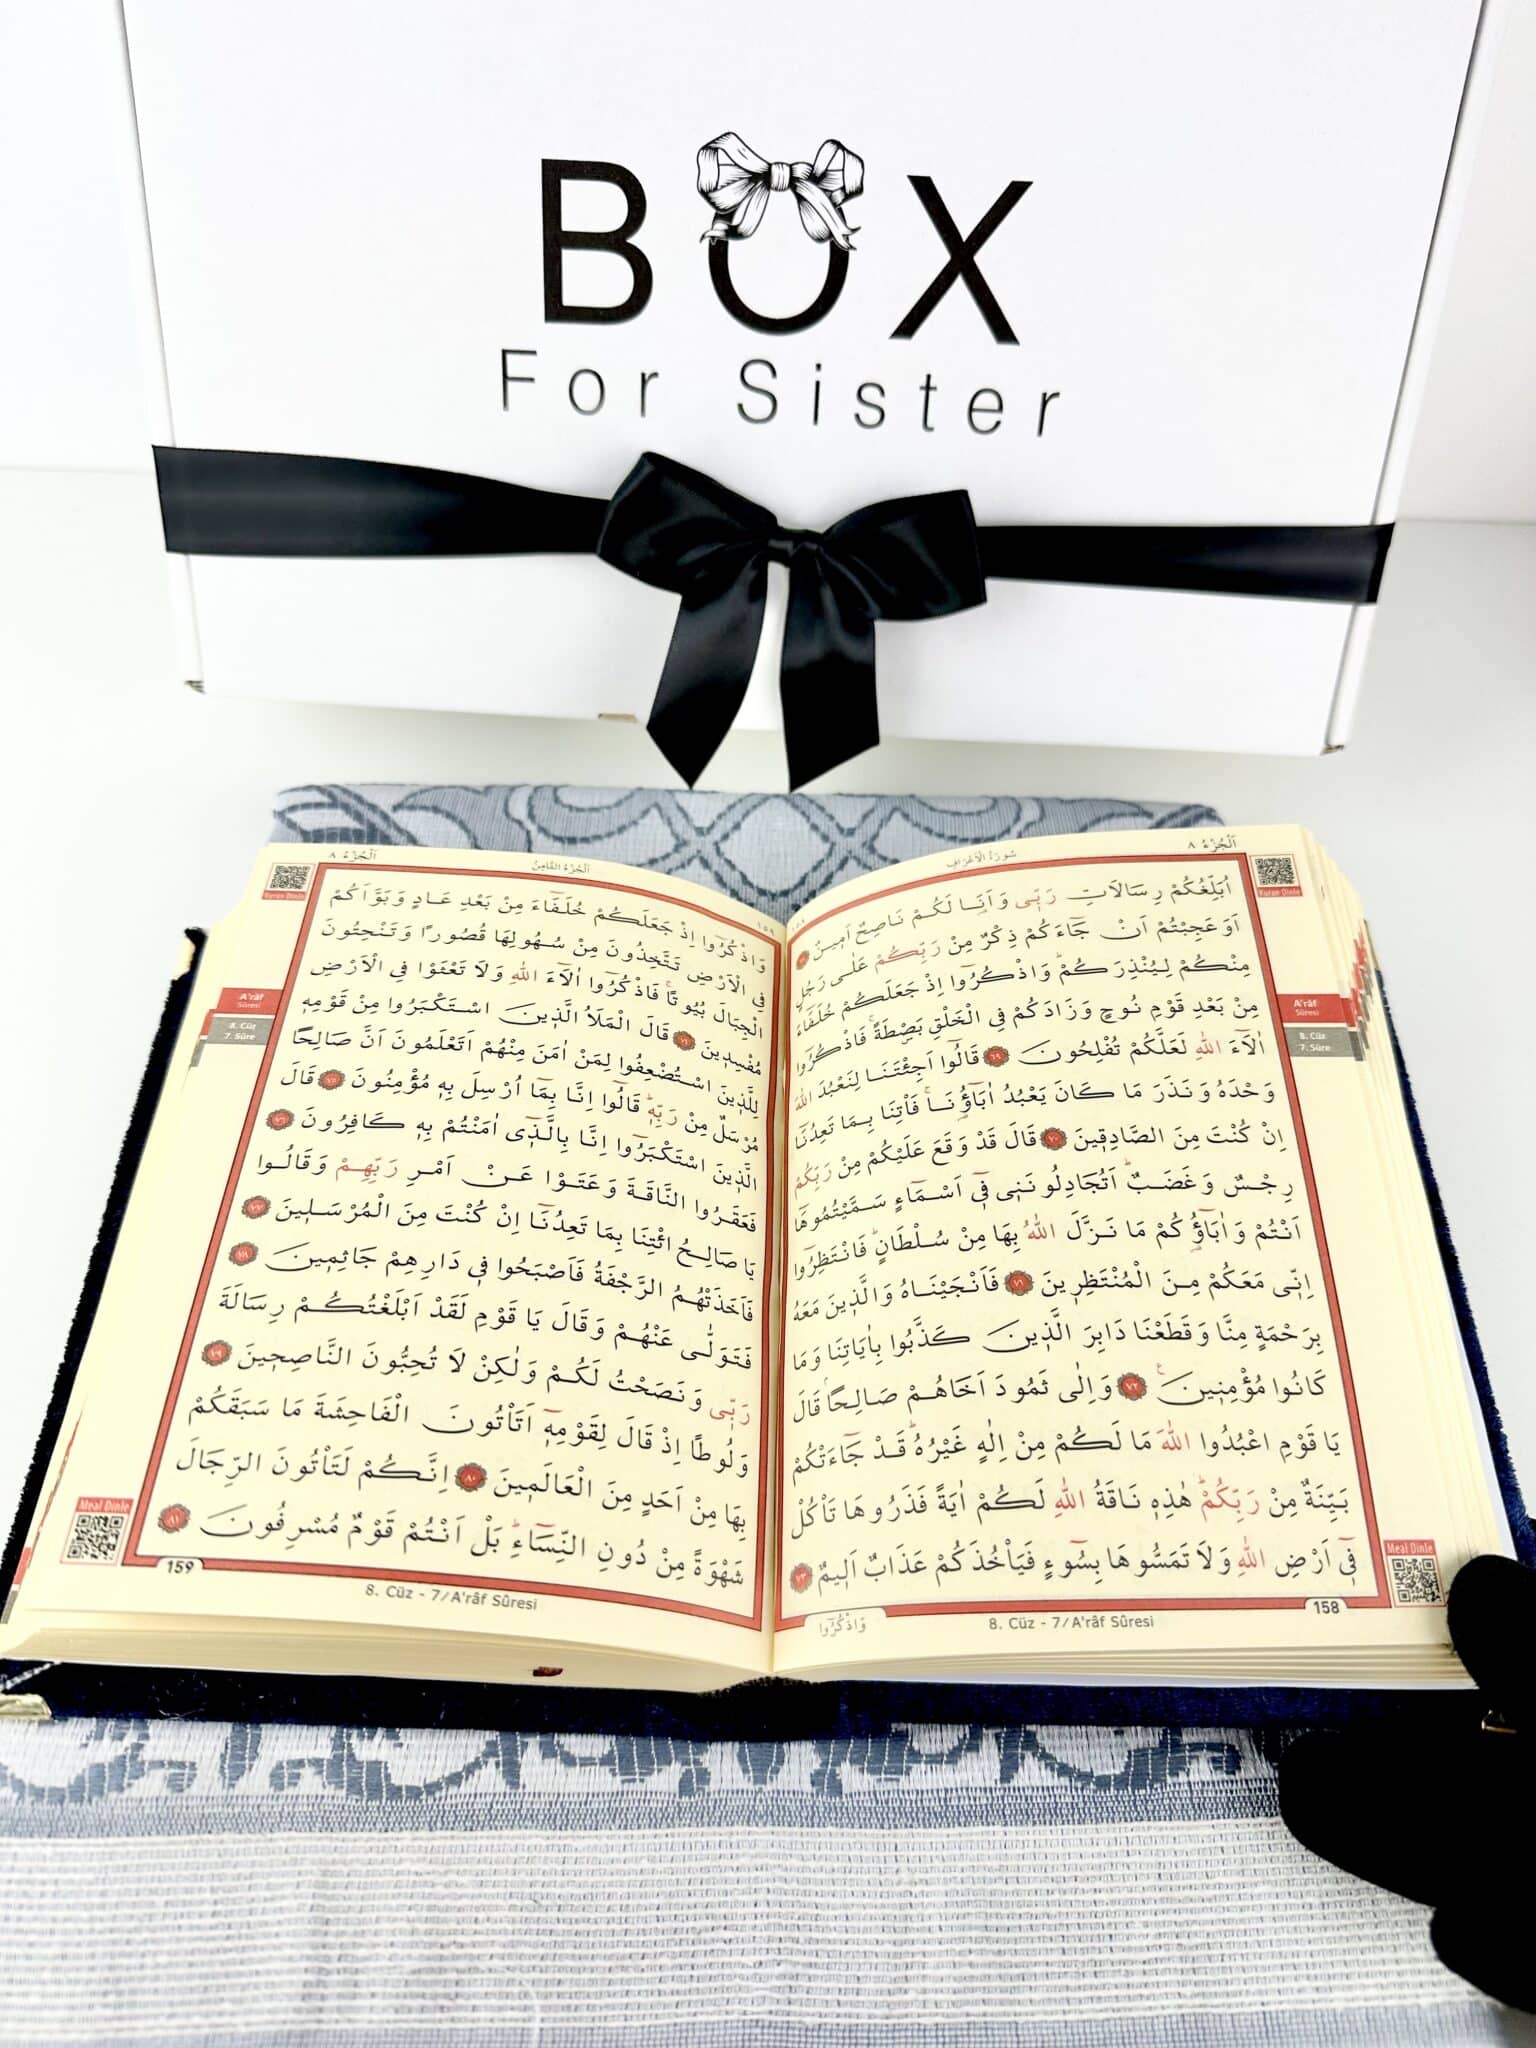 BOX
For Sister
اَلْجُزْءُ ٨
سُورَةُ الْاَعْرَافِ
١٥٨
Kuran Dinle
A'râf
Sûresi
8. Cüz
7. Sûre
اُبَلِّغُكُمْ رِسَالَاتِ رَبّ۪ي وَاَنَا۬ لَكُمْ نَاصِحٌ اَم۪ينٌ ٦٨
اَوَعَجِبْتُمْ اَنْ جَٓاءَكُمْ ذِكْرٌ مِنْ رَبِّكُمْ عَلٰى رَجُلٍ
مِنْكُمْ لِيُنْذِرَكُمْۜ وَاذْكُرُٓوا اِذْ جَعَلَكُمْ خُلَفَٓاءَ
مِنْ بَعْدِ قَوْمِ نُوحٍ وَزَادَكُمْ فِي الْخَلْقِ بَصْۣطَةًۚ فَاذْكُرُٓوا
اٰلَٓاءَ اللّٰهِ لَعَلَّكُمْ تُفْلِحُونَ ٦٩ قَالُٓوا اَجِئْتَنَا لِنَعْبُدَ اللّٰهَ
وَحْدَهُ وَنَذَرَ مَا كَانَ يَعْبُدُ اٰبَٓاؤُ۬نَاۚ فَأْتِنَا بِمَا تَعِدُنَٓا
اِنْ كُنْتَ مِنَ الصَّادِق۪ينَ ٧٠ قَالَ قَدْ وَقَعَ عَلَيْكُمْ مِنْ رَبِّكُمْ
رِجْسٌ وَغَضَبٌۜ اَتُجَادِلُونَن۪ي ف۪ٓي اَسْمَٓاءٍ سَمَّيْتُمُوهَٓا
اَنْتُمْ وَاٰبَٓاؤُ۬كُمْ مَا نَزَّلَ اللّٰهُ بِهَا مِنْ سُلْطَانٍۜ فَانْتَظِرُٓوا
اِنّ۪ي مَعَكُمْ مِنَ الْمُنْتَظِر۪ينَ ٧١ فَاَنْجَيْنَاهُ وَالَّذ۪ينَ مَعَهُ
بِرَحْمَةٍ مِنَّا وَقَطَعْنَا دَابِرَ الَّذ۪ينَ كَذَّبُوا بِاٰيَاتِنَا وَمَا
كَانُوا مُؤْمِن۪ينَ۟ ٧٢ وَاِلٰى ثَمُودَ اَخَاهُمْ صَالِحًاۢ قَالَ
يَا قَوْمِ اعْبُدُوا اللّٰهَ مَا لَكُمْ مِنْ اِلٰهٍ غَيْرُهُۜ قَدْ جَٓاءَتْكُمْ
بَيِّنَةٌ مِنْ رَبِّكُمْۜ هٰذِه۪ نَاقَةُ اللّٰهِ لَكُمْ اٰيَةً فَذَرُوهَا تَأْكُلْ
ف۪ٓي اَرْضِ اللّٰهِ وَلَا تَمَسُّوهَا بِسُٓوءٍ فَيَأْخُذَكُمْ عَذَابٌ اَل۪يمٌ ٧٣
Meal Dinle
158
8. Cüz - 7/A'râf Sûresi
وَاذْكُرُٓوا
اَلْجُزْءُ ٨
اَلْجُزْءُ الثَّامِنُ
١٥٩
Kuran Dinle
A'râf
Sûresi
8. Cüz
7. Sûre
وَاذْكُرُٓوا اِذْ جَعَلَكُمْ خُلَفَٓاءَ مِنْ بَعْدِ عَادٍ وَبَوَّاَكُمْ
فِي الْاَرْضِ تَتَّخِذُونَ مِنْ سُهُولِهَا قُصُورًا وَتَنْحِتُونَ
الْجِبَالَ بُيُوتًاۚ فَاذْكُرُٓوا اٰلَٓاءَ اللّٰهِ وَلَا تَعْثَوْا فِي الْاَرْضِ
مُفْسِد۪ينَ ٧٤ قَالَ الْمَلَاُ الَّذ۪ينَ اسْتَكْبَرُوا مِنْ قَوْمِه۪
لِلَّذ۪ينَ اسْتُضْعِفُوا لِمَنْ اٰمَنَ مِنْهُمْ اَتَعْلَمُونَ اَنَّ صَالِحًا
مُرْسَلٌ مِنْ رَبِّه۪ۜ قَالُٓوا اِنَّا بِمَٓا اُرْسِلَ بِه۪ مُؤْمِنُونَ ٧٥ قَالَ
الَّذ۪ينَ اسْتَكْبَرُٓوا اِنَّا بِالَّذ۪ٓي اٰمَنْتُمْ بِه۪ كَافِرُونَ ٧٦
فَعَقَرُوا النَّاقَةَ وَعَتَوْا عَنْ اَمْرِ رَبِّهِمْ وَقَالُوا
يَا صَالِحُ ائْتِنَا بِمَا تَعِدُنَٓا اِنْ كُنْتَ مِنَ الْمُرْسَل۪ينَ ٧٧
فَاَخَذَتْهُمُ الرَّجْفَةُ فَاَصْبَحُوا ف۪ي دَارِهِمْ جَاثِم۪ينَ ٧٨
فَتَوَلّٰى عَنْهُمْ وَقَالَ يَا قَوْمِ لَقَدْ اَبْلَغْتُكُمْ رِسَالَةَ
رَبّ۪ي وَنَصَحْتُ لَكُمْ وَلٰكِنْ لَا تُحِبُّونَ النَّاصِح۪ينَ ٧٩
وَلُوطًا اِذْ قَالَ لِقَوْمِه۪ٓ اَتَأْتُونَ الْفَاحِشَةَ مَا سَبَقَكُمْ
بِهَا مِنْ اَحَدٍ مِنَ الْعَالَم۪ينَ ٨٠ اِنَّكُمْ لَتَأْتُونَ الرِّجَالَ
شَهْوَةً مِنْ دُونِ النِّسَٓاءِۜ بَلْ اَنْتُمْ قَوْمٌ مُسْرِفُونَ ٨١
Meal Dinle
159
8. Cüz - 7/A'râf Sûresi